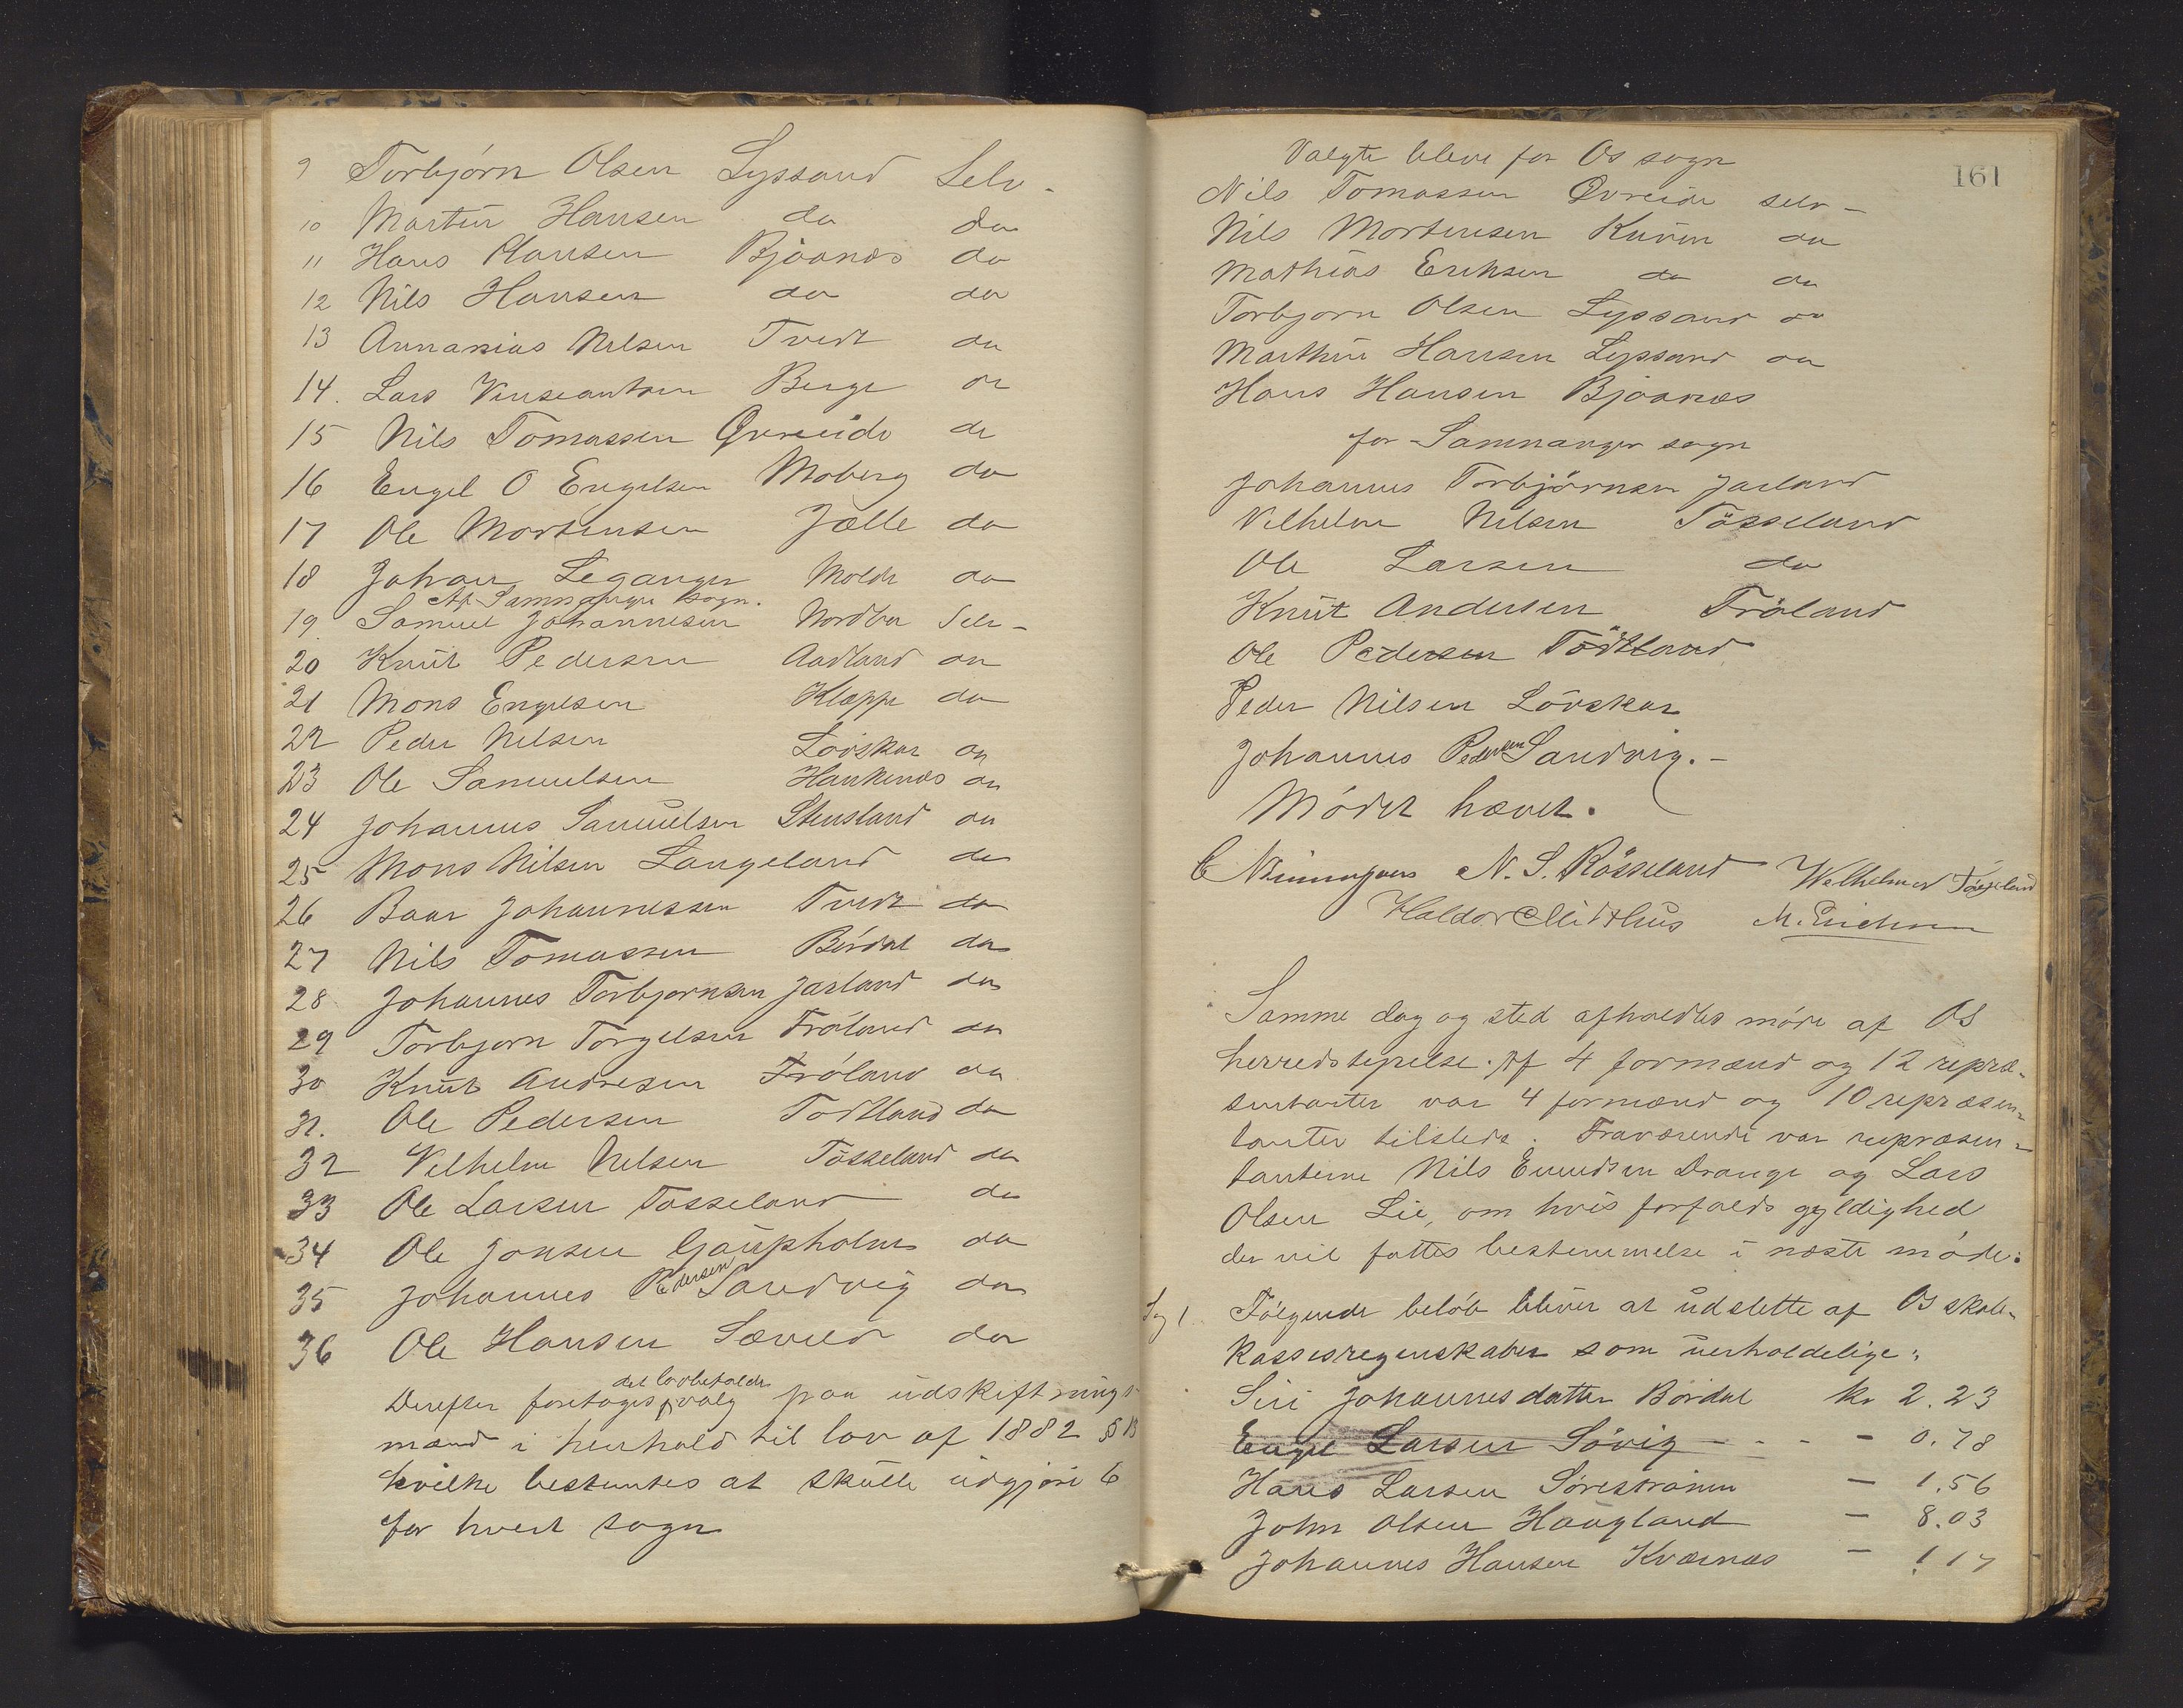 9 Torbjörn Olsen Lyssand Selv -
10 Martin Hansen do do
11 Hans Hansen Bjøanæs do
12 Nils Hansen do do
13 Annanias Nilsen Tvedt do
14. Lars Vinseantsen Berge do
15 Nils Tomassen Øvreeide do
16 Engel O Engelsen Moberg do
17 Ole Mortensen Jælle do
18 Johan Leganger Molde do
Af Samnanger sogn.
19. Samuel Johannesen Nordbø Selv -
20 Knut Pedersen Aadland do
21 Mons Engelsen Kleppe do
22 Peder Nilsen Lövskar do
23 Ole Samuelsen Haukenæs do
24 Johannes Samuelsen Stensland do
25 Mons Nilsen Langeland do
26 Baar Johannessen Tvedt do
27 Nils Tomassen Bördal do
28 Johannes Torbjornsen Jarland do
29 Torbjorn Torgelsen Fröland do
30 Knut Andresen Fröland do
31. Ole Pedersen Tödtland do
32 Vilhelm Nilsen Tösseland do
33 Ole Larsen Tösseland do
34 Ole Jonsen Gaupholm do
35 Johannes Pedersen Sandvig do
36 Ole Hansen Sævild do
Derefter foretoges det lovbefalede valg paa udskiftnings-
mænd i henhold til lov af 1882 § 13
hvilke bestemtes at skulle udgjøre 6
for hvert sogn
161
Valgte bleve for Os sogn
Nils Tomassen Øvreide selv -
Nils Mortensen Kuven do
Mathias Eriksen do do
Torbjorn Olsen Lyssand do
Marthin Hansen Lyssand do
Hans Hansen Bjøanæs
for Samnanger sogn
Johannes Torbjörnsen Jarland
Vilhelm Nilsen Tösseland
Ole Larsen do
Knut Andersen Fröland
Ole Pedersen Tödtland
Peder Nilsen Lövskar
Johannes Pedersen Sandvig. -
Mödet hævet.
N. S. Rösseland Wilhelm N Tösseland
Haldor Midthus M. Erichsen
Samme dag og sted afholdtes möde af Os
herredstyrelse. Af 4 formænd og 12 repræ-
sentanter var 4 formænd og 10 repræsen-
tanter tilstede. Fraværende var repræsen-
tanterne Nils Emundsen Drange og Lars
Olsen Lie, om hvis forfalds gyldighed
der vil fattes bestemmelse i næste möde.
Sag 1. Fölgende belöb bliver at udslette af Os skole-
kasseregenskaber som uerholdelige:
Siri Johannesdatter Bördal kr 2.23
Engel Larsen Sövig - - - - 0.78
Hans Larsen Sörestrønen - 1.56
John Olsen Haugland - 8.03
Johannes Hansen Kværnæs - 1.17